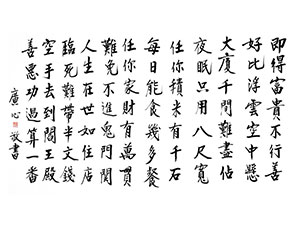 即得富貴不行善
好比浮雲空中懸
大廈千間難盡佔
夜眠只用八尺寬
任你積米有千石
每日能食幾多餐
任你家財有萬貫
難免不進鬼門關
人生在世如住店
臨死難帶半文錢
空手去到閻王殿
善惡功過算一番
廣心敬書